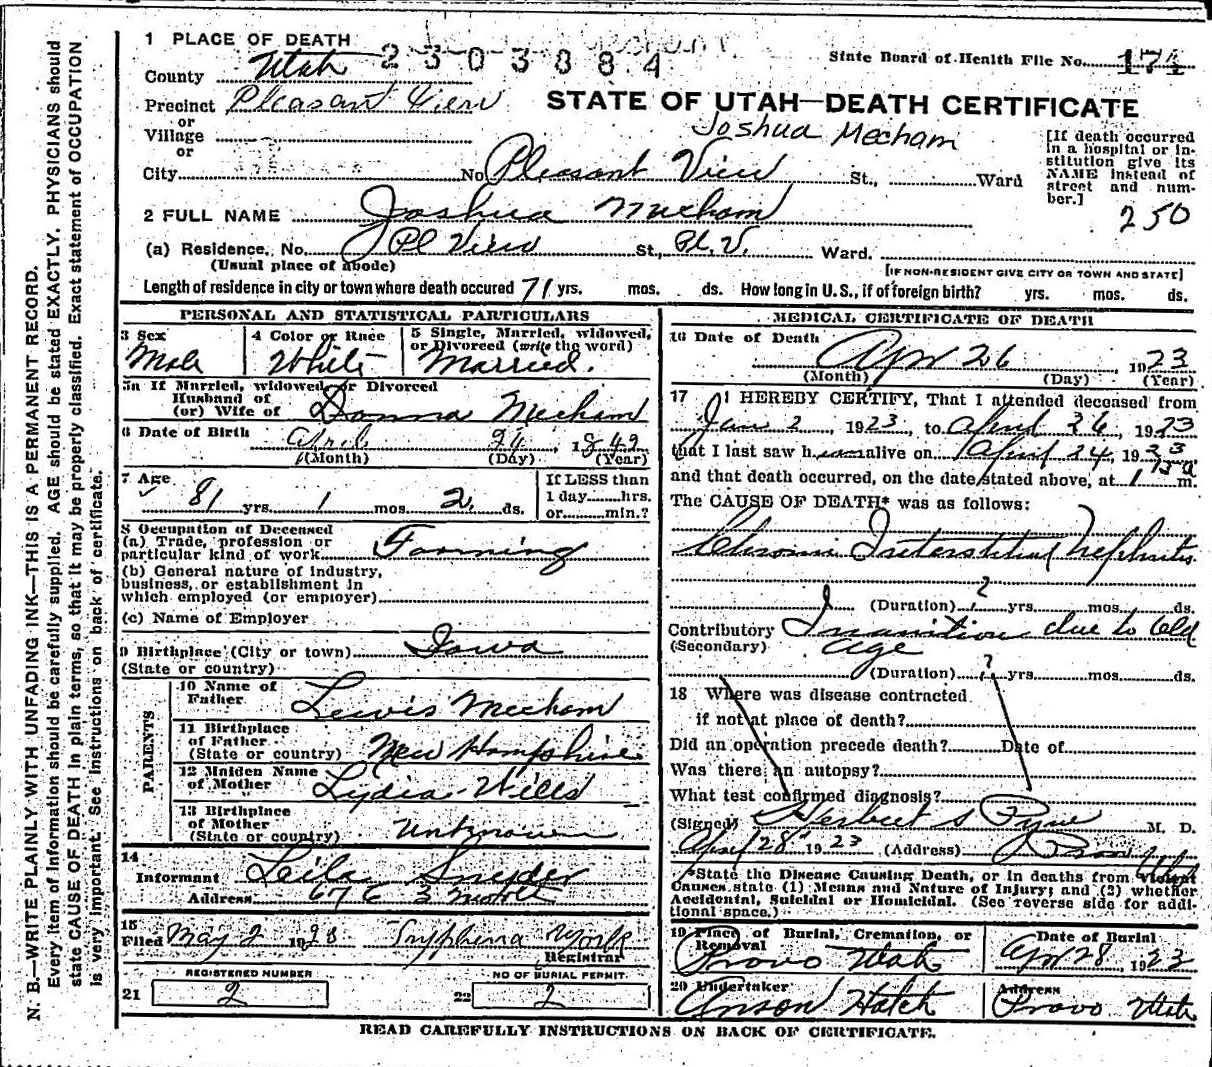 1 PLACE OF DEATH
2303884
State Board of Health File No. 174
County Utah
Precinct Pleasant View
STATE OF UTAH—DEATH CERTIFICATE
or
Village
Joshua Mecham
or
City No Pleasant View St., Ward
[If death occurred
in a hospital or in-
stitution give its
NAME instead of
street and num-
ber.]
250
2 FULL NAME Joshua Mecham
(a) Residence. No. Pl View St., Pl. V. Ward.
(Usual place of abode)
[IF NON-RESIDENT GIVE CITY OR TOWN AND STATE]
Length of residence in city or town where death occured 71 yrs. mos. ds. How long in U. S., if of foreign birth? yrs. mos. ds.
PERSONAL AND STATISTICAL PARTICULARS
3 Sex
Male
4 Color or Race
White
5 Single, Married, widowed,
or Divorced (write the word)
Married.
5a If Married, widowed or Divorced
Husband of
(or) Wife of Donna Mecham
6 Date of Birth April 24, 1842
(Month) (Day) (Year)
7 Age
81 yrs. 1 mos. 2 ds.
If LESS than
1 day hrs.
or min.?
8 Occupation of Deceased
(a) Trade, profession or
particular kind of work Farming
(b) General nature of industry,
business, or establishment in
which employed (or employer)
(c) Name of Employer
9 Birthplace (City or town) Iowa
(State or country)
PARENTS
10 Name of
Father Lewis Mecham
11 Birthplace
of Father
(State or country) New Hampshire
12 Maiden Name
of Mother Lydia Wells
13 Birthplace
of Mother
(State or country) Unknown
14
Informant Leila Snyder
Address 67 E 3 North
15
Filed May 2 1923 Tryphena York
Registrar
REGISTERED NUMBER
21 2
NO OF BURIAL PERMIT
22 2
MEDICAL CERTIFICATE OF DEATH
16 Date of Death
Apr 26, 1923
(Month) (Day) (Year)
17 I HEREBY CERTIFY, That I attended deceased from
Jan 2, 1923, to April 26, 1923
that I last saw h alive on April 24, 1923
and that death occurred, on the date stated above, at m.
The CAUSE OF DEATH* was as follows:
Chronic Interstitial Nephritis
(Duration) ? yrs. mos. ds.
Contributory Inanition due to Old
(Secondary) age
(Duration) ? yrs. mos. ds.
18 Where was disease contracted
if not at place of death?
Did an operation precede death? Date of
Was there an autopsy?
What test confirmed diagnosis?
(Signed) Herbert S Pyne M. D.
April 28 1923 (Address) Provo Utah
*State the Disease Causing Death, or in deaths from Violent
Causes state (1) Means and Nature of Injury; and (2) whether
Accidental, Suicidal or Homicidal. (See reverse side for addi-
tional space.)
19 Place of Burial, Cremation, or
Removal
Provo Utah
Date of Burial
Apr 28, 1923
20 Undertaker
Anson Hatch
Address
Provo Utah
READ CAREFULLY INSTRUCTIONS ON BACK OF CERTIFICATE.
N. B.—WRITE PLAINLY WITH UNFADING INK—THIS IS A PERMANENT RECORD.
Every item of information should be carefully supplied. AGE should be stated EXACTLY. PHYSICIANS should
state CAUSE OF DEATH in plain terms, so that it may be properly classified. Exact statement of OCCUPATION
is very important. See instructions on back of certificate.